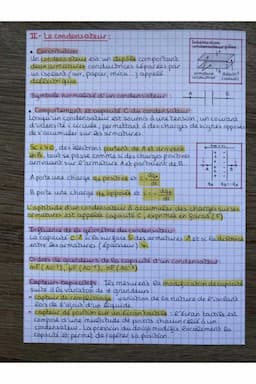 II - Le condensateur :
• Constitution
Un condensateur est un dipôle comportant
deux armatures conductrices séparées par
un isolant (air, papier, mica...) appelé
diélectrique.
Symbole normalisé d'un condensateur :
• Comportement et capacité C du condensateur
Lorsqu'un condensateur est soumis à une tension, un courant
d'intensité i circule, permettant à des charges de signes opposés
de s'accumuler sur les armatures.
Si i > 0, des électrons partent de A et arrivent
en B, tout se passe comme si des charges positives
arrivaient sur l'armature A et partaient de B.
A porte une charge qA positive et i =
B porte une charge qB opposée et i = -
L'aptitude d'un condensateur à accumuler des charges sur ses
armatures est appelée capacité C, exprimée en farad (F)
Influence de la géométrie du condensateur :
La capacité C si la surface des armatures et si la distance
entre les armatures (épaisseur)
Ordres de grandeurs de la capacité d'un condensateur :
Capteurs capacitifs : Ils mesurent la modification de capacité
suite à la variation de grandeur :
• capteur de remplissage : variation de la nature de l'isolant
lors de l'ajout d'un liquide.
• capteur de position sur un écran tactile : l'écran tactile est
composé d'une multitude de points chacun relié à un
condensateur. La pression du doigt modifie localement la
capacité et permet de repérer sa position